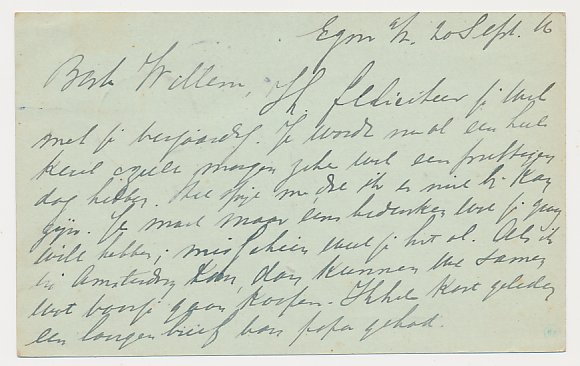 Egm a/z. 20 Sept. 16
Beste Willem, Ik feliciteer je wel
met je verjaardag. Je wordt nu al een heele
kerel & zult morgen zeker wel een prettigen
dag hebben. Het spijt me dat ik er niet bij kan
zijn. Je moet maar eens bedenken wat je graag
wilt hebben; misschien weet je het al. Als ik
in Amsterdam kom, dan kunnen we samen
wat voor je gaan koopen. Ik heb kort geleden
een langen brief van papa gehad.